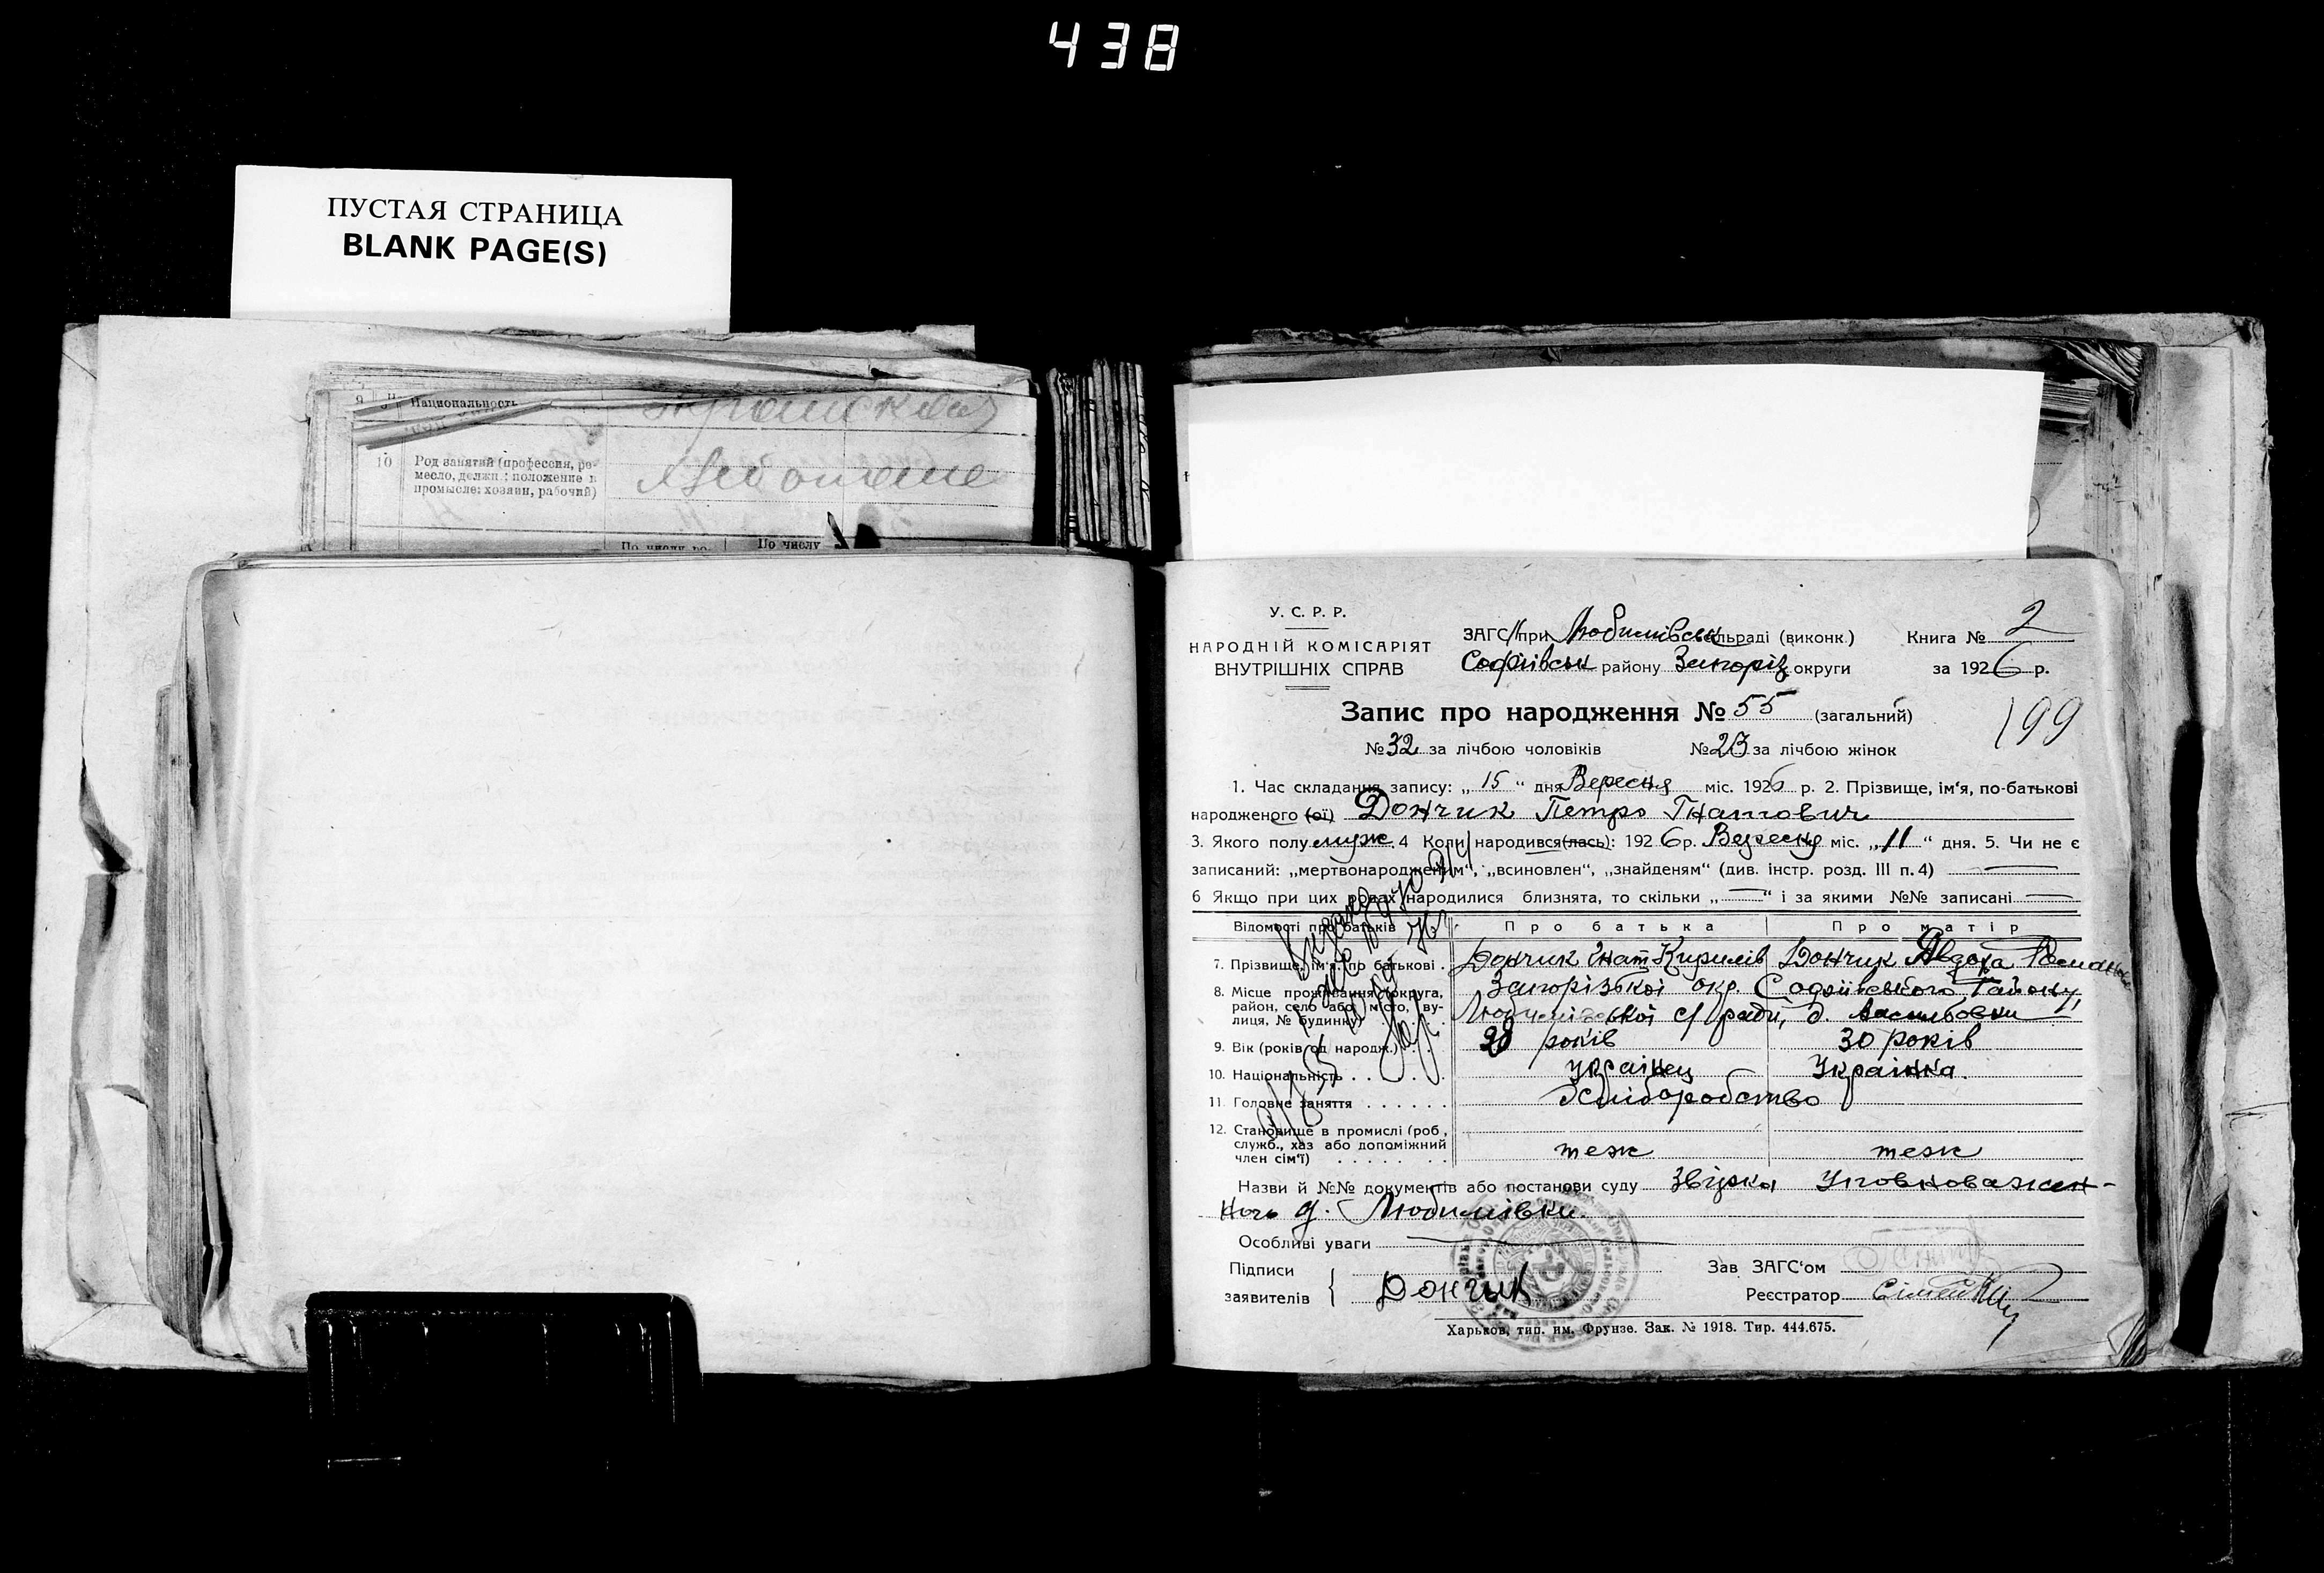 438
ПУСТАЯ СТРАНИЦА
BLANK PAGE(S)
9
Национальность
10 Род занятий (профессия, ре-
месло, должн.; положение в
промысле: хозяин, рабочий)
По числу
У. С. Р. Р.
НАРОДНІЙ КОМІСАРІЯТ
ВНУТРІШНІХ СПРАВ
ЗАГС при Любимівськ сільраді (виконк.) Книга № 2
Софіївськ району Запоріз округи за 1926 р.
Запис про народження № 55 (загальний)
199
№ 32 за лічбою чоловіків № 23 за лічбою жінок
1. Час складання запису: „ 15 “ дня Вересня міс. 1926 р. 2. Прізвище, ім‘я, по-батькові
народженого (ої) Дончик Петро Гнатович
3. Якого полу муж. 4 Коли народився(лась): 1926 р. Вересня міс. „ 11 “ дня. 5. Чи не є
записаний: „мертвонародженим“, „всиновлен“, „знайденям“ (див. інстр. розд. III п. 4)
6 Якщо при цих родах народилися близнята, то скільки „ “ і за якими №№ записані
Відомості про батьків Про батька Про матір
7. Прізвище, ім‘я, по батькові . Дончик Гнат Кирилів Дончик Авдоха Романов
8. Місце проживання (округа, Запорізької окр. Софіївського Району,
район, село або місто, ву-
лиця, № будинку) Любимівської с/ ради, д. Василбовки
9. Вік (років од народж.) . . 28 років 30 років
10. Національність . . . . . Українец Українка.
11. Головне заняття . . . . . . Хліборобство
12. Становище в промислі (роб.,
служб., хаз або допоміжний
член сім‘ї) . . . . . . теж теж
Назви й №№ документів або постанови суду Звірка Уповноважен-
ного д. Любимівки.
Особливі уваги
Підписи
заявителів { Дончик
Зав ЗАГС‘ом
Реєстратор
Харьков, тип. им. Фрунзе. Зак. № 1918. Тир. 444.675.